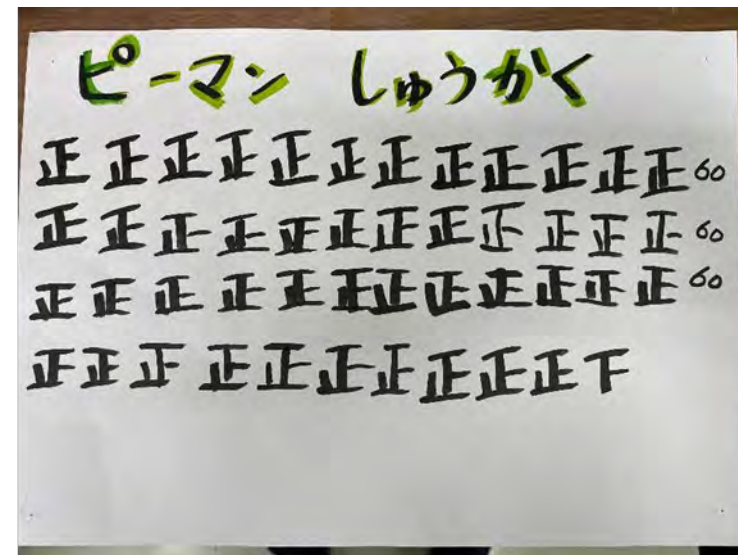 ピーマン しゅうかく
正正正正正正正正正正正正60
正正正正正正正正正正正正60
正正正正正正正正正正正正60
正正正正正正正正正正下